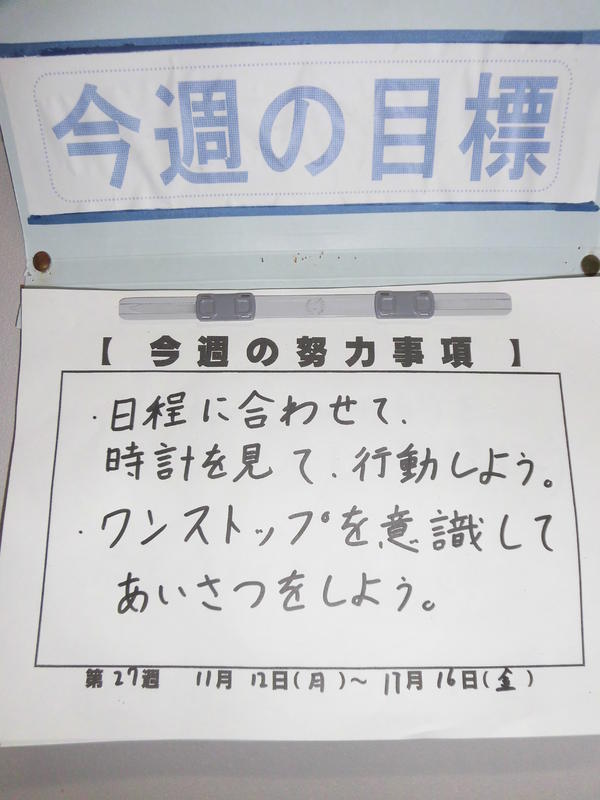 今週の目標
【 今週の努力事項 】
・日程に合わせて、
時計を見て、行動しよう。
・ワンストップを意識して
あいさつをしよう。
第27週 11月12日(月)～11月16日(金)